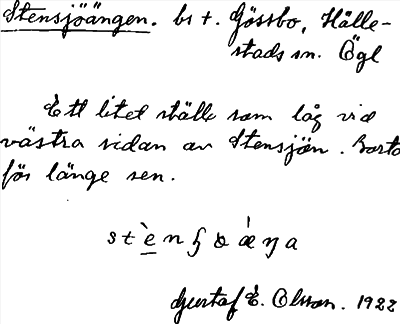 Stensjöängen. bs t. Gössbo, Hälle-
stads sn. Ögl
Ett litet ställe som låg vid
västra sidan av Stensjön. Borta
för länge sen.
Gustaf E. Olsson. 1922